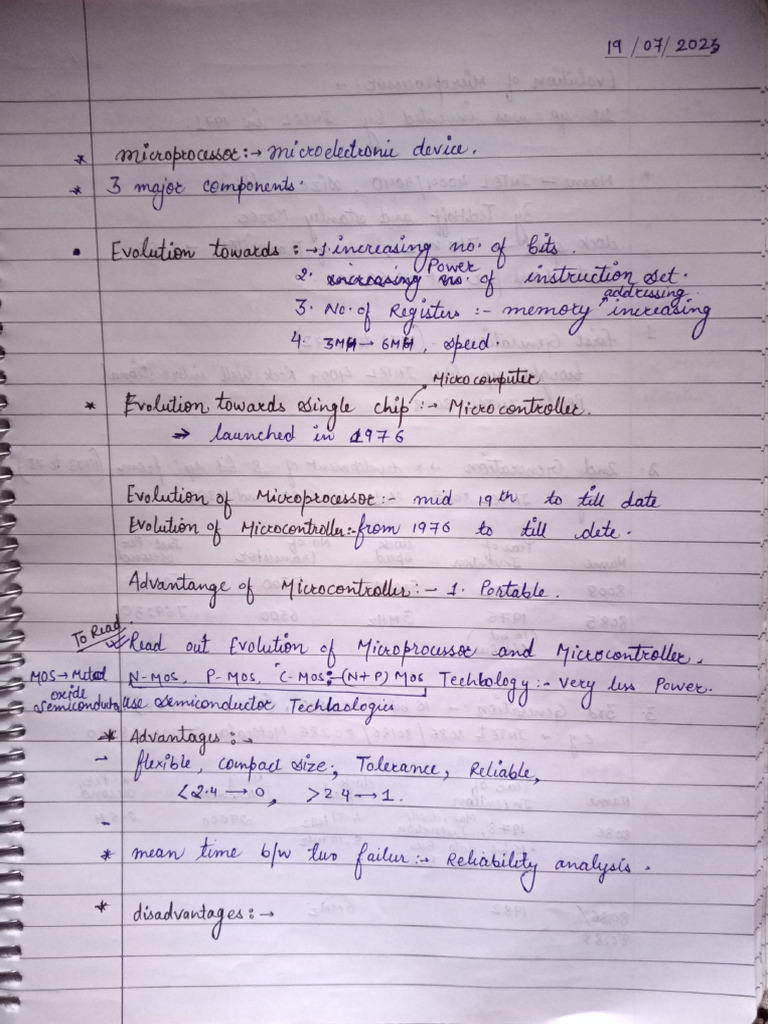 19/07/2023
* Microprocessor :→ Microelectronic device.
* 3 major components.
• Evolution towards :→ 1. increasing no. of bits.
2. Power of instruction set.
3. No. of Registers :- memory addressing increasing
4. 3MH → 6MH, speed.
Microcomputer
* Evolution towards single chip :→ Microcontroller.
→ launched in 1976
Evolution of Microprocessor :- mid 19th to till date
Evolution of Microcontroller :- from 1976 to till dete.
Advantange of Microcontroller :- 1. Portable.
To Read
Read out Evolution of Microprocessor and Microcontroller.
MOS → Metal oxide Semiconductor
N-MOS, P-MOS, C-MOS:-(N+P) MOS Techbology :- very less Power.
use semiconductor Techlaologies
* Advantages :→
- flexible, compact size, Tolerance, Reliable,
<2.4 → 0, >2.4 → 1.
-
* mean time b/w two failur :→ Reliability analysis.
* disadvantages :→